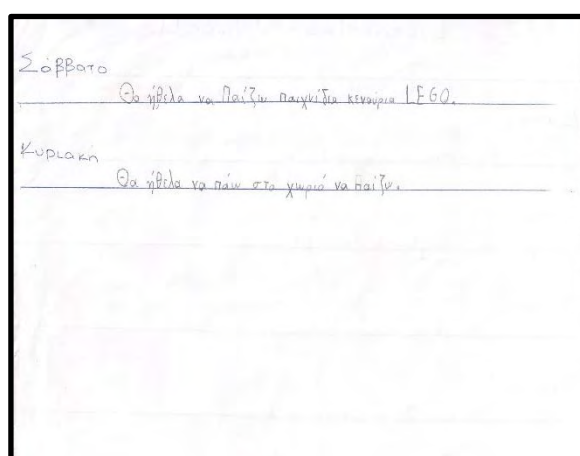 Σάββατο
Θα ήθελα να Παίζω παιχνίδια κενούρια LEGO.
Κυριακή
Θα ήθελα να πάω στο χωριό να παίζω.